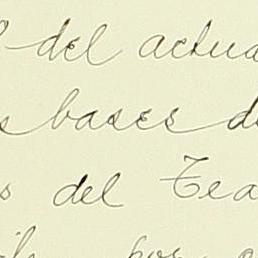 del actua
bases de
s del Tea
por